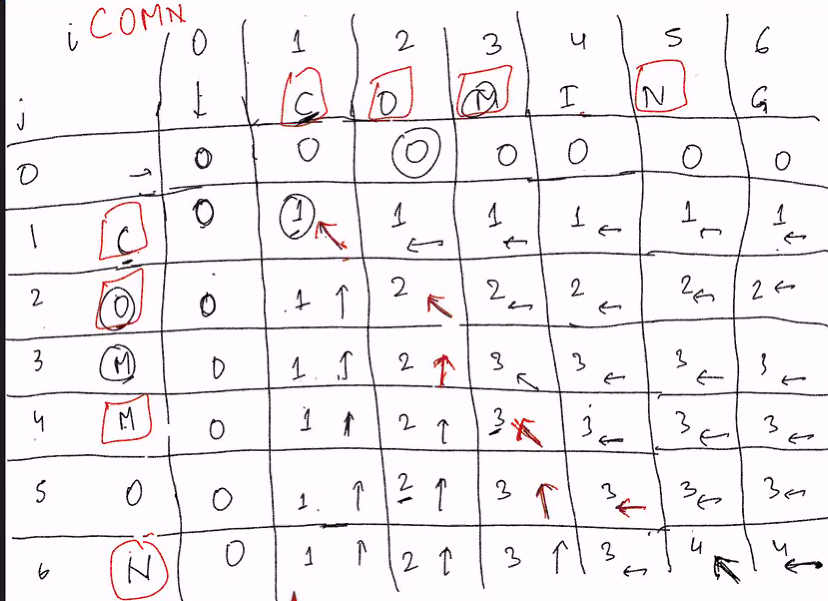 i COMN 0 1 2 3 4 5 6
j C O M I N G
0 → 0 0 0 0 0 0 0
1 C 0 1 ↖ 1 ← 1 ← 1 ← 1 ← 1 ←
2 O 0 1 ↑ 2 ↖ 2 ← 2 ← 2 ← 2 ←
3 M 0 1 ↑ 2 ↑ 3 ↖ 3 ← 3 ← 3 ←
4 M 0 1 ↑ 2 ↑ 3 ↖ 3 ← 3 ← 3 ←
5 O 0 1 ↑ 2 ↑ 3 ↑ 3 ← 3 ← 3 ←
6 N 0 1 ↑ 2 ↑ 3 ↑ 3 ← 4 ↖ 4 ←